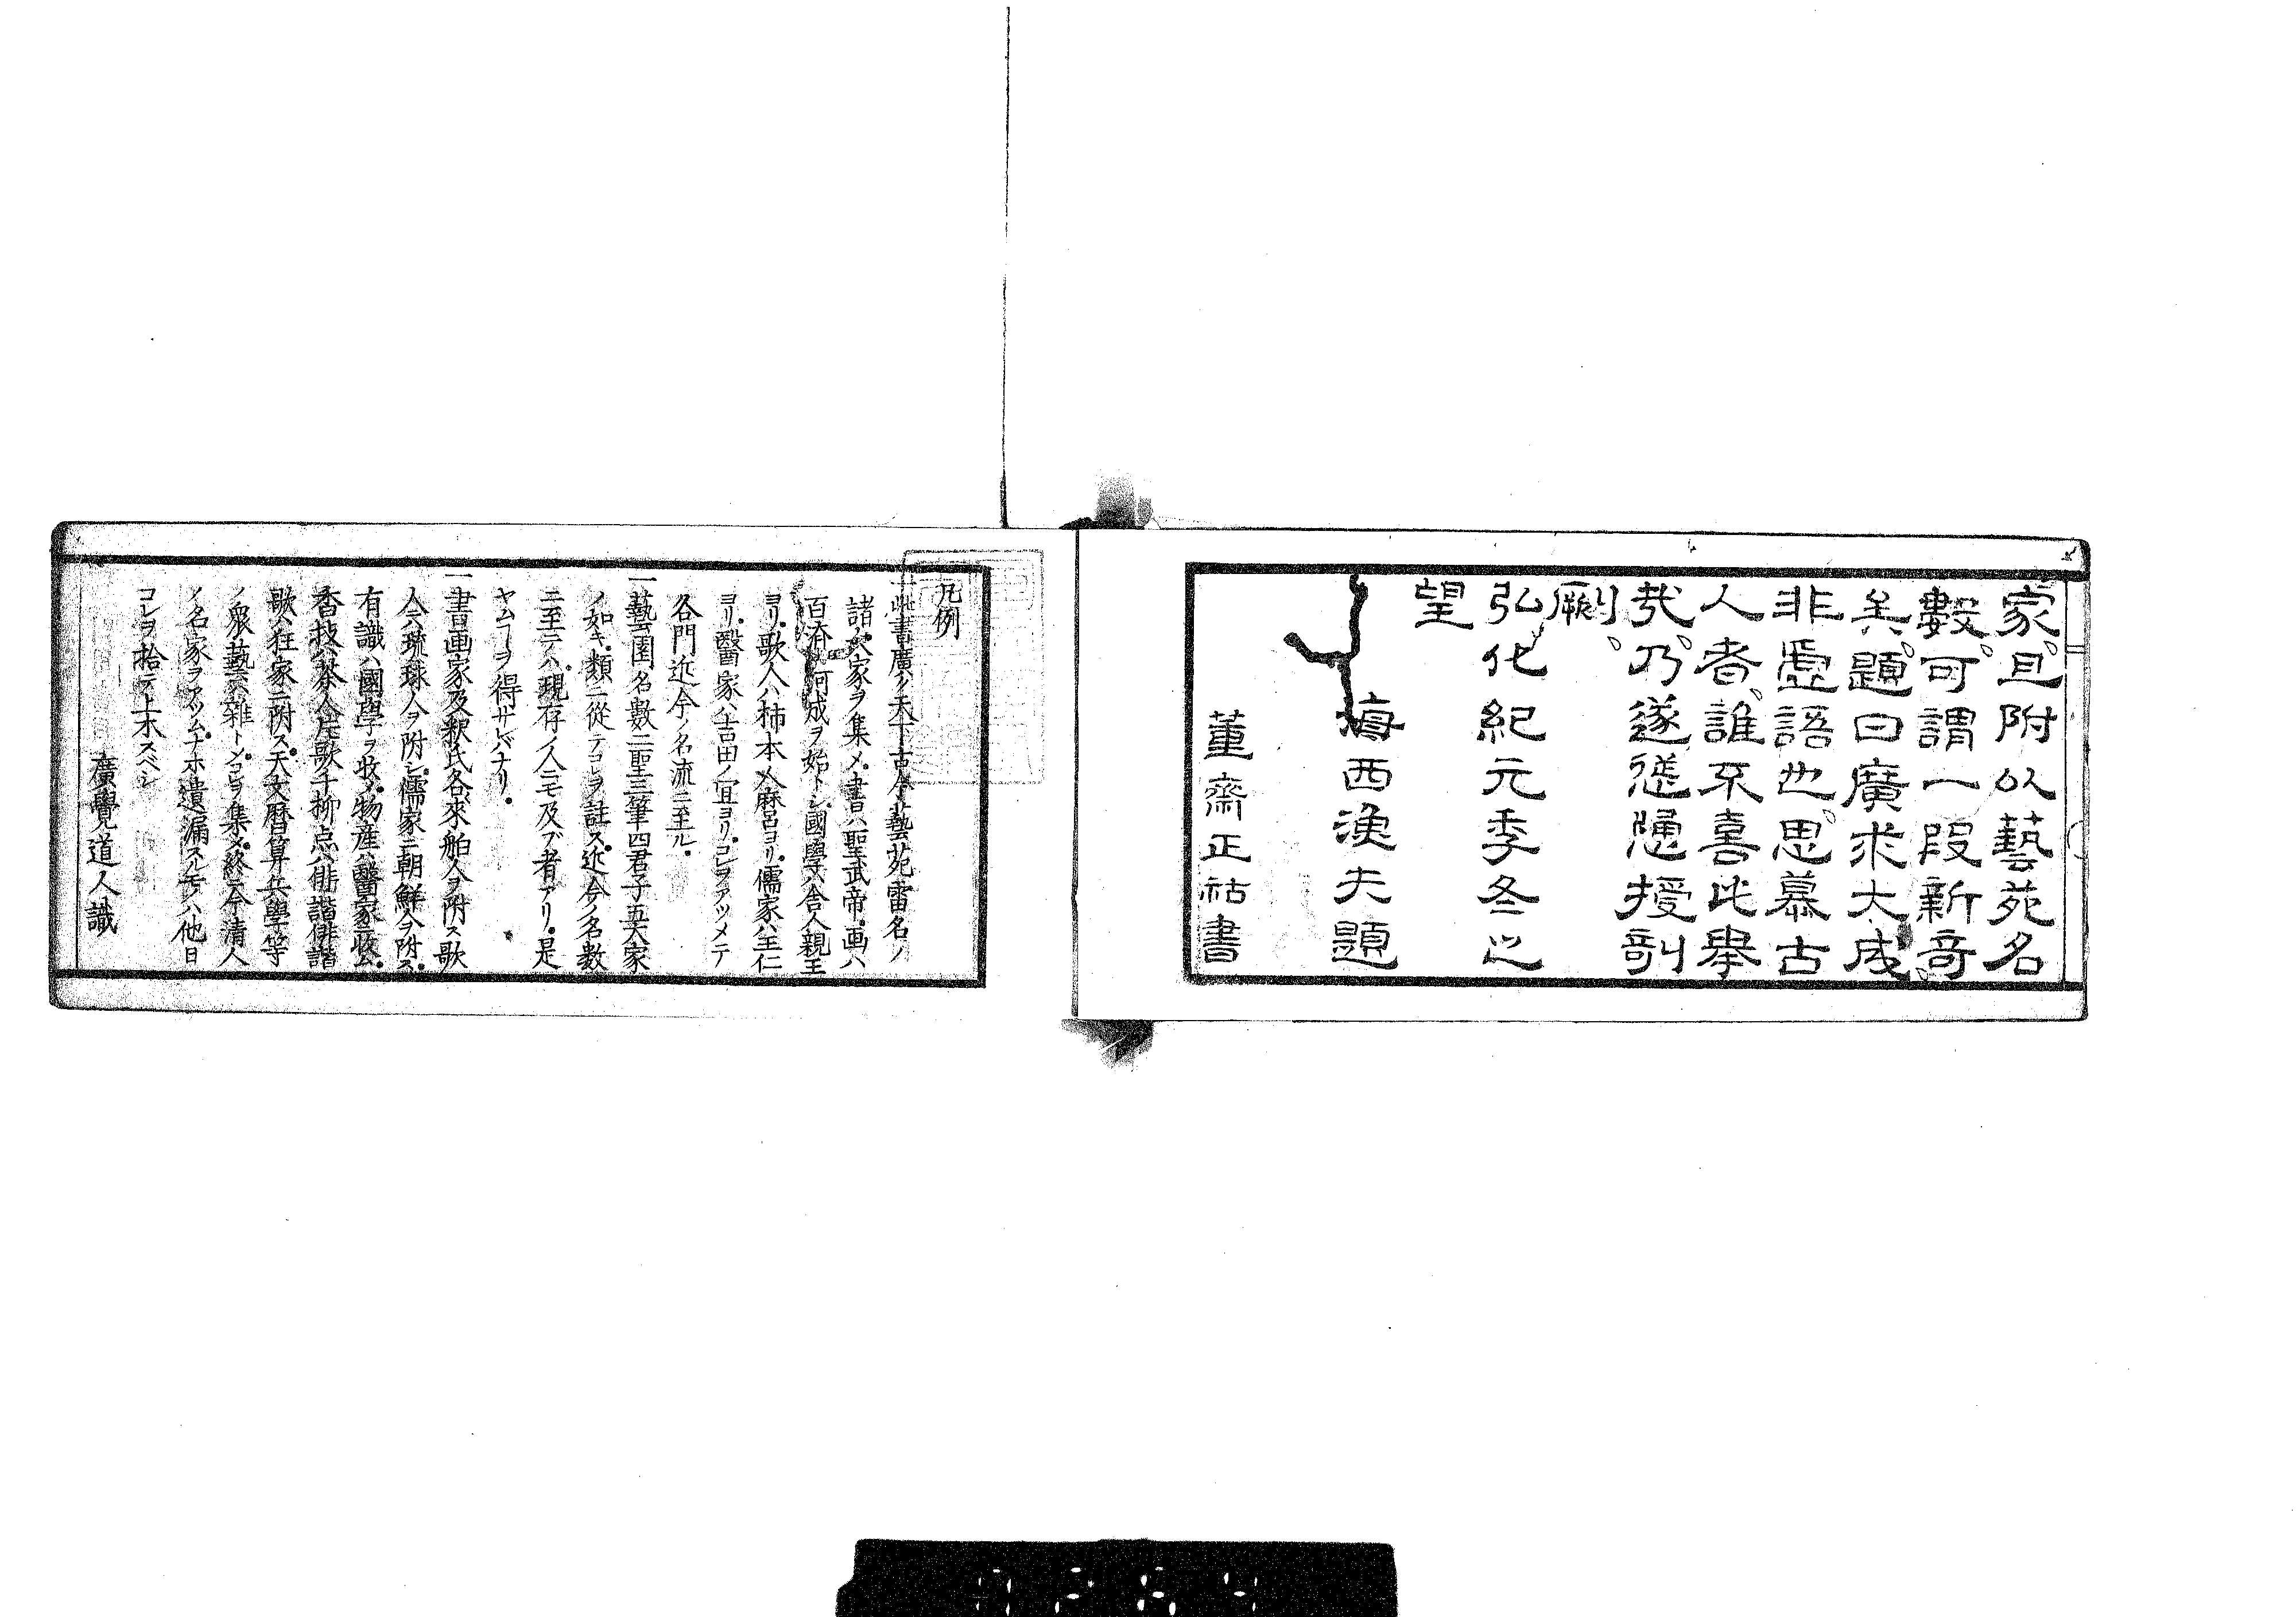 家、且附以藝苑名
數、可謂一段新奇
矣、題曰廣求大成、
非虛語也、思慕古
人者、誰不喜此擧
哉、乃遂慫慂授剞
劂、
弘化紀元季冬之
望
海西漁夫題
董齋正祜書
凡例
一此書廣ク天下古今藝苑雷名ノ
諸大家ヲ集メ書ハ聖武帝画ハ
百済河成ヲ始トシ國學ハ舎人親王
ヨリ歌人ハ柿本人麻呂ヨリ儒家ハ王仁
ヨリ醫家ハ吉田ノ宜ヨリコレヲアツメテ
各門近今ノ名流ニ至ル
一藝園名數二聖三筆四君子五大家
ノ如キ類ニ從テコレヲ註ス近今ノ名數
ニ至テハ現存ノ人ニモ及ブ者アリ是
ヤムヿヲ得ザレバナリ
一書画家及釈氏各來舶人ヲ附ス歌
人ハ琉球人ヲ附シ儒家ニ朝鮮人ヲ附ス
有識ハ國學ヲ收メ物産ハ醫家ニ收ム
香技ハ茶人座歌千柳点ハ俳諧俳諧
歌ハ狂家ニ附ス天文暦算兵學等
ノ衆藝ハ雜トシコレヲ集メ終ニ今清人
ノ名家ヲアツムナホ遺漏スルモノハ他日
コレヲ拾テ上木スベシ
廣覺道人識